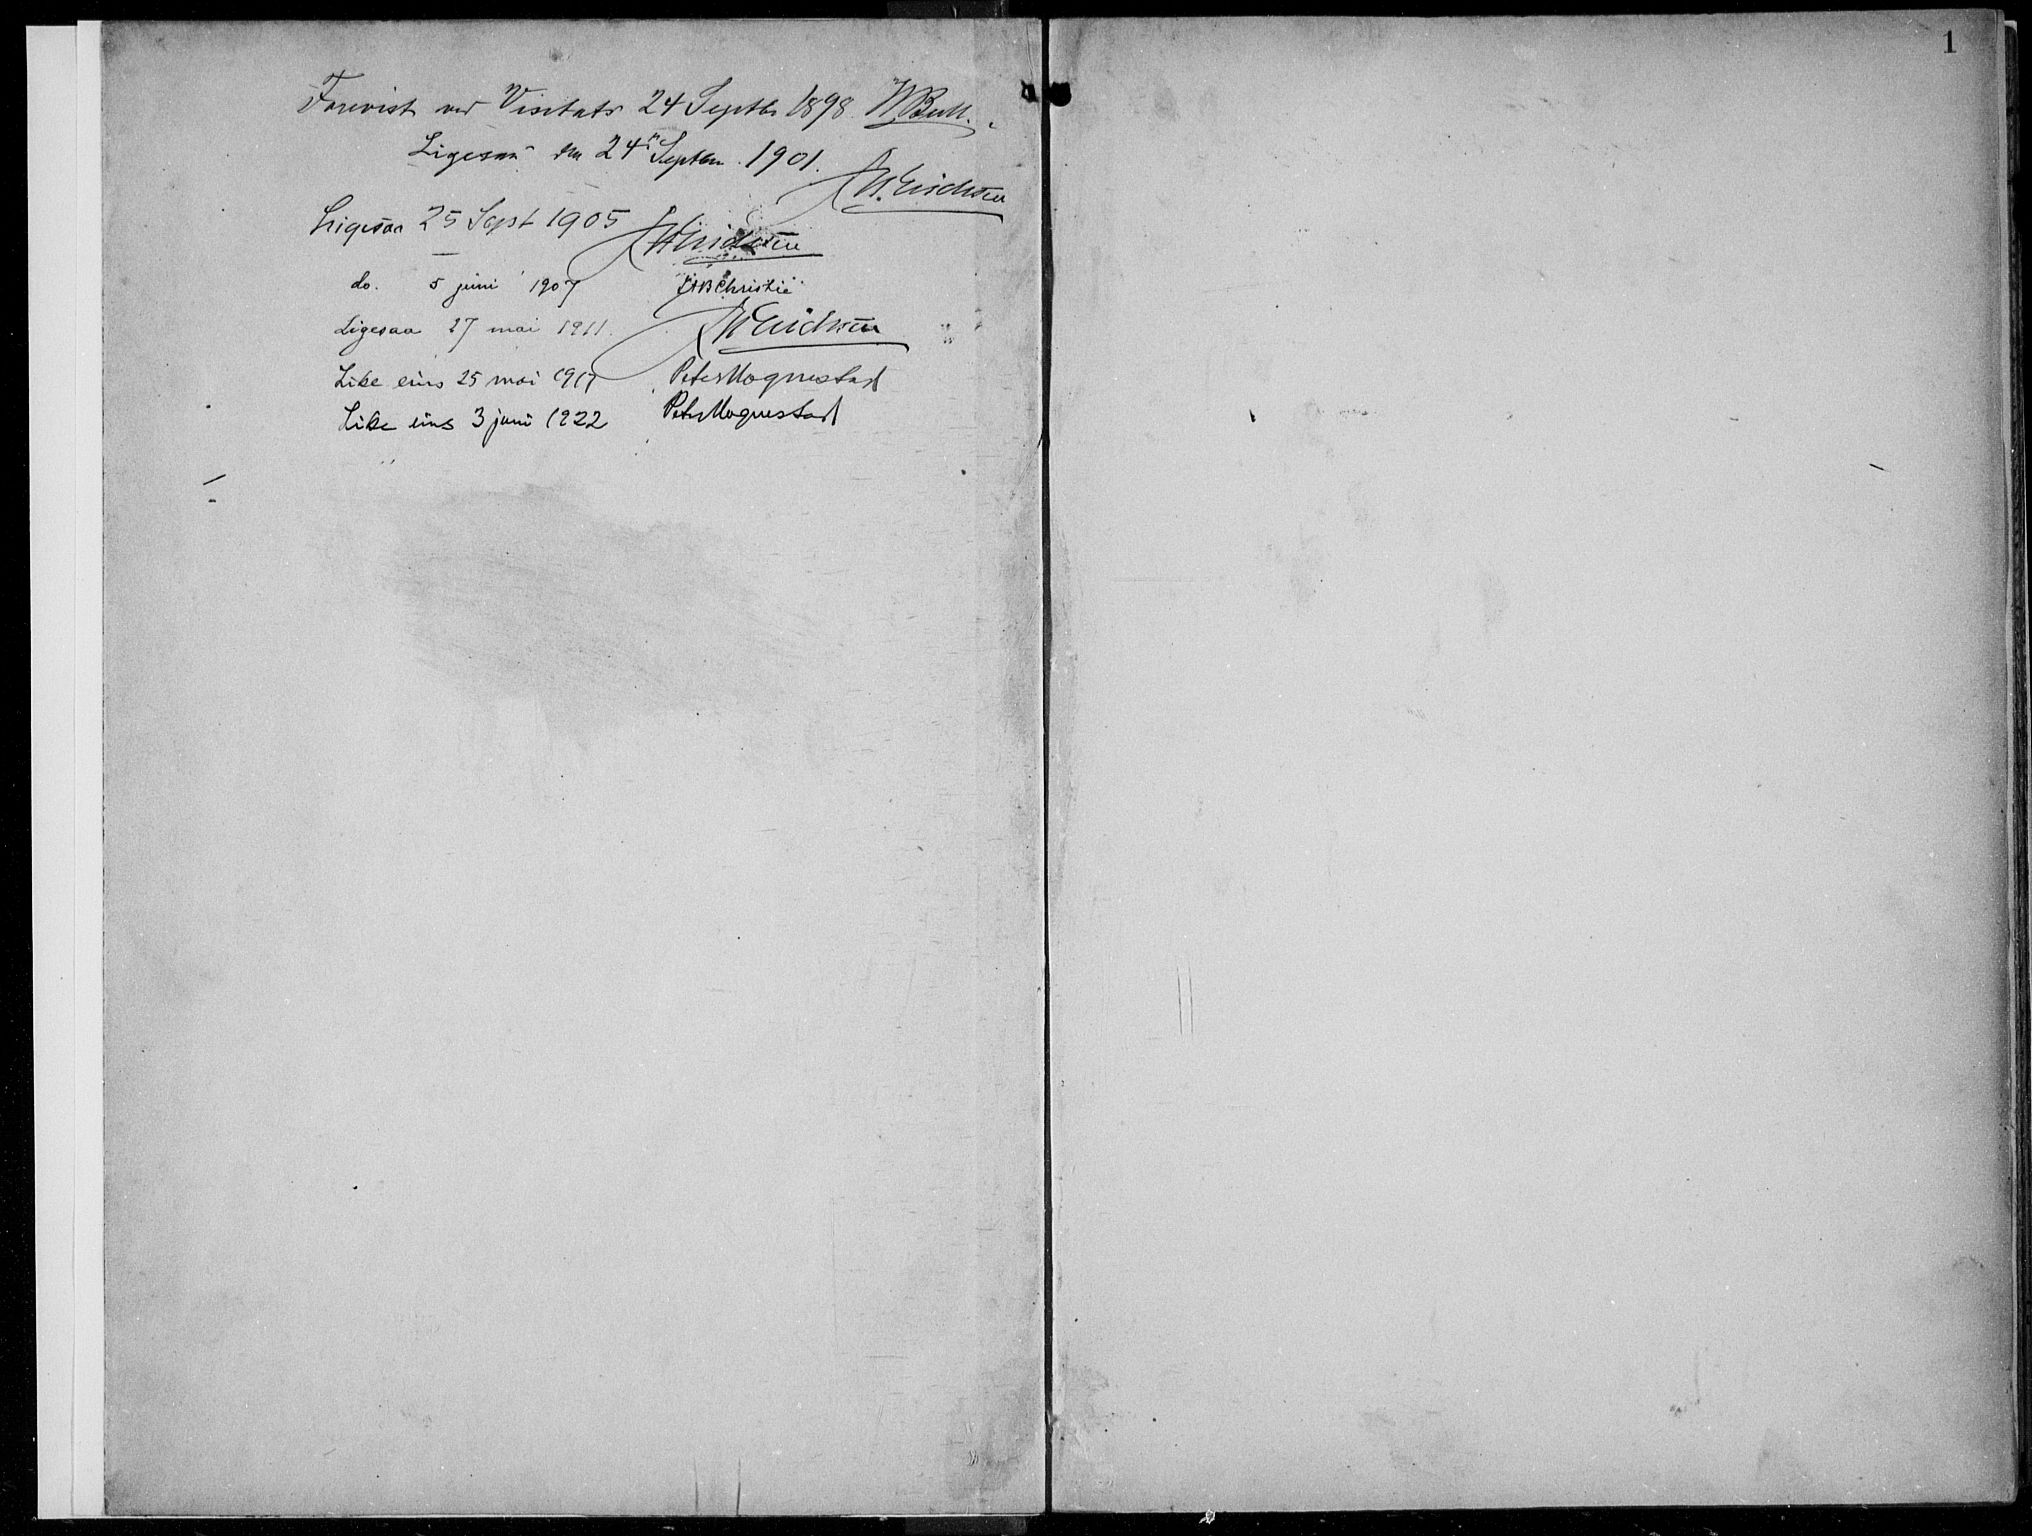 Forevist ved Visitats 24 Septbr 1898. W Bull.
Ligesaa den 24n Septbr. 1901.
W. Erichsen
Ligesaa 25 Sept 1905 W Erichsen
do. 5 juni 1907 Christie
Ligesaa 27 mai 1911. W Erichsen
Like eins 25 mai 1917 Peter Hognestad
Like eins 3 juni 1922 Peter Hognestad
1